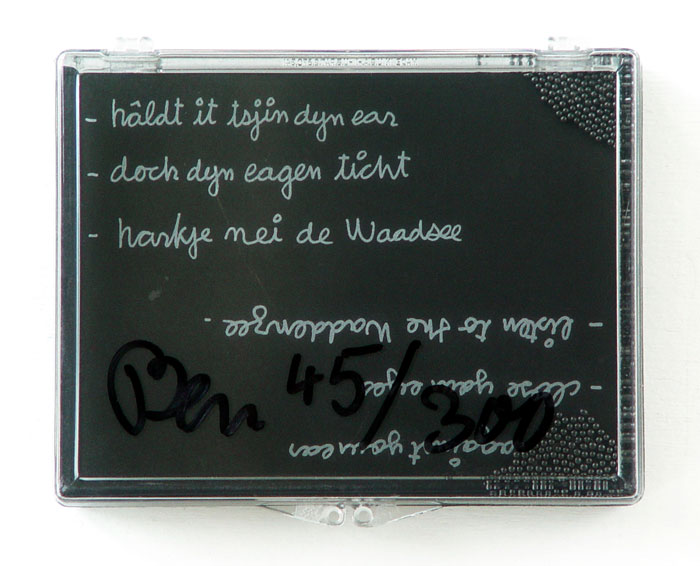 - hâldt it tsjin dyn ear
- doch dyn eagen ticht
- harkje nei de Waadsee
against your ear
- close your eyes
- listen to the Waddenzee.
Ben 45/300